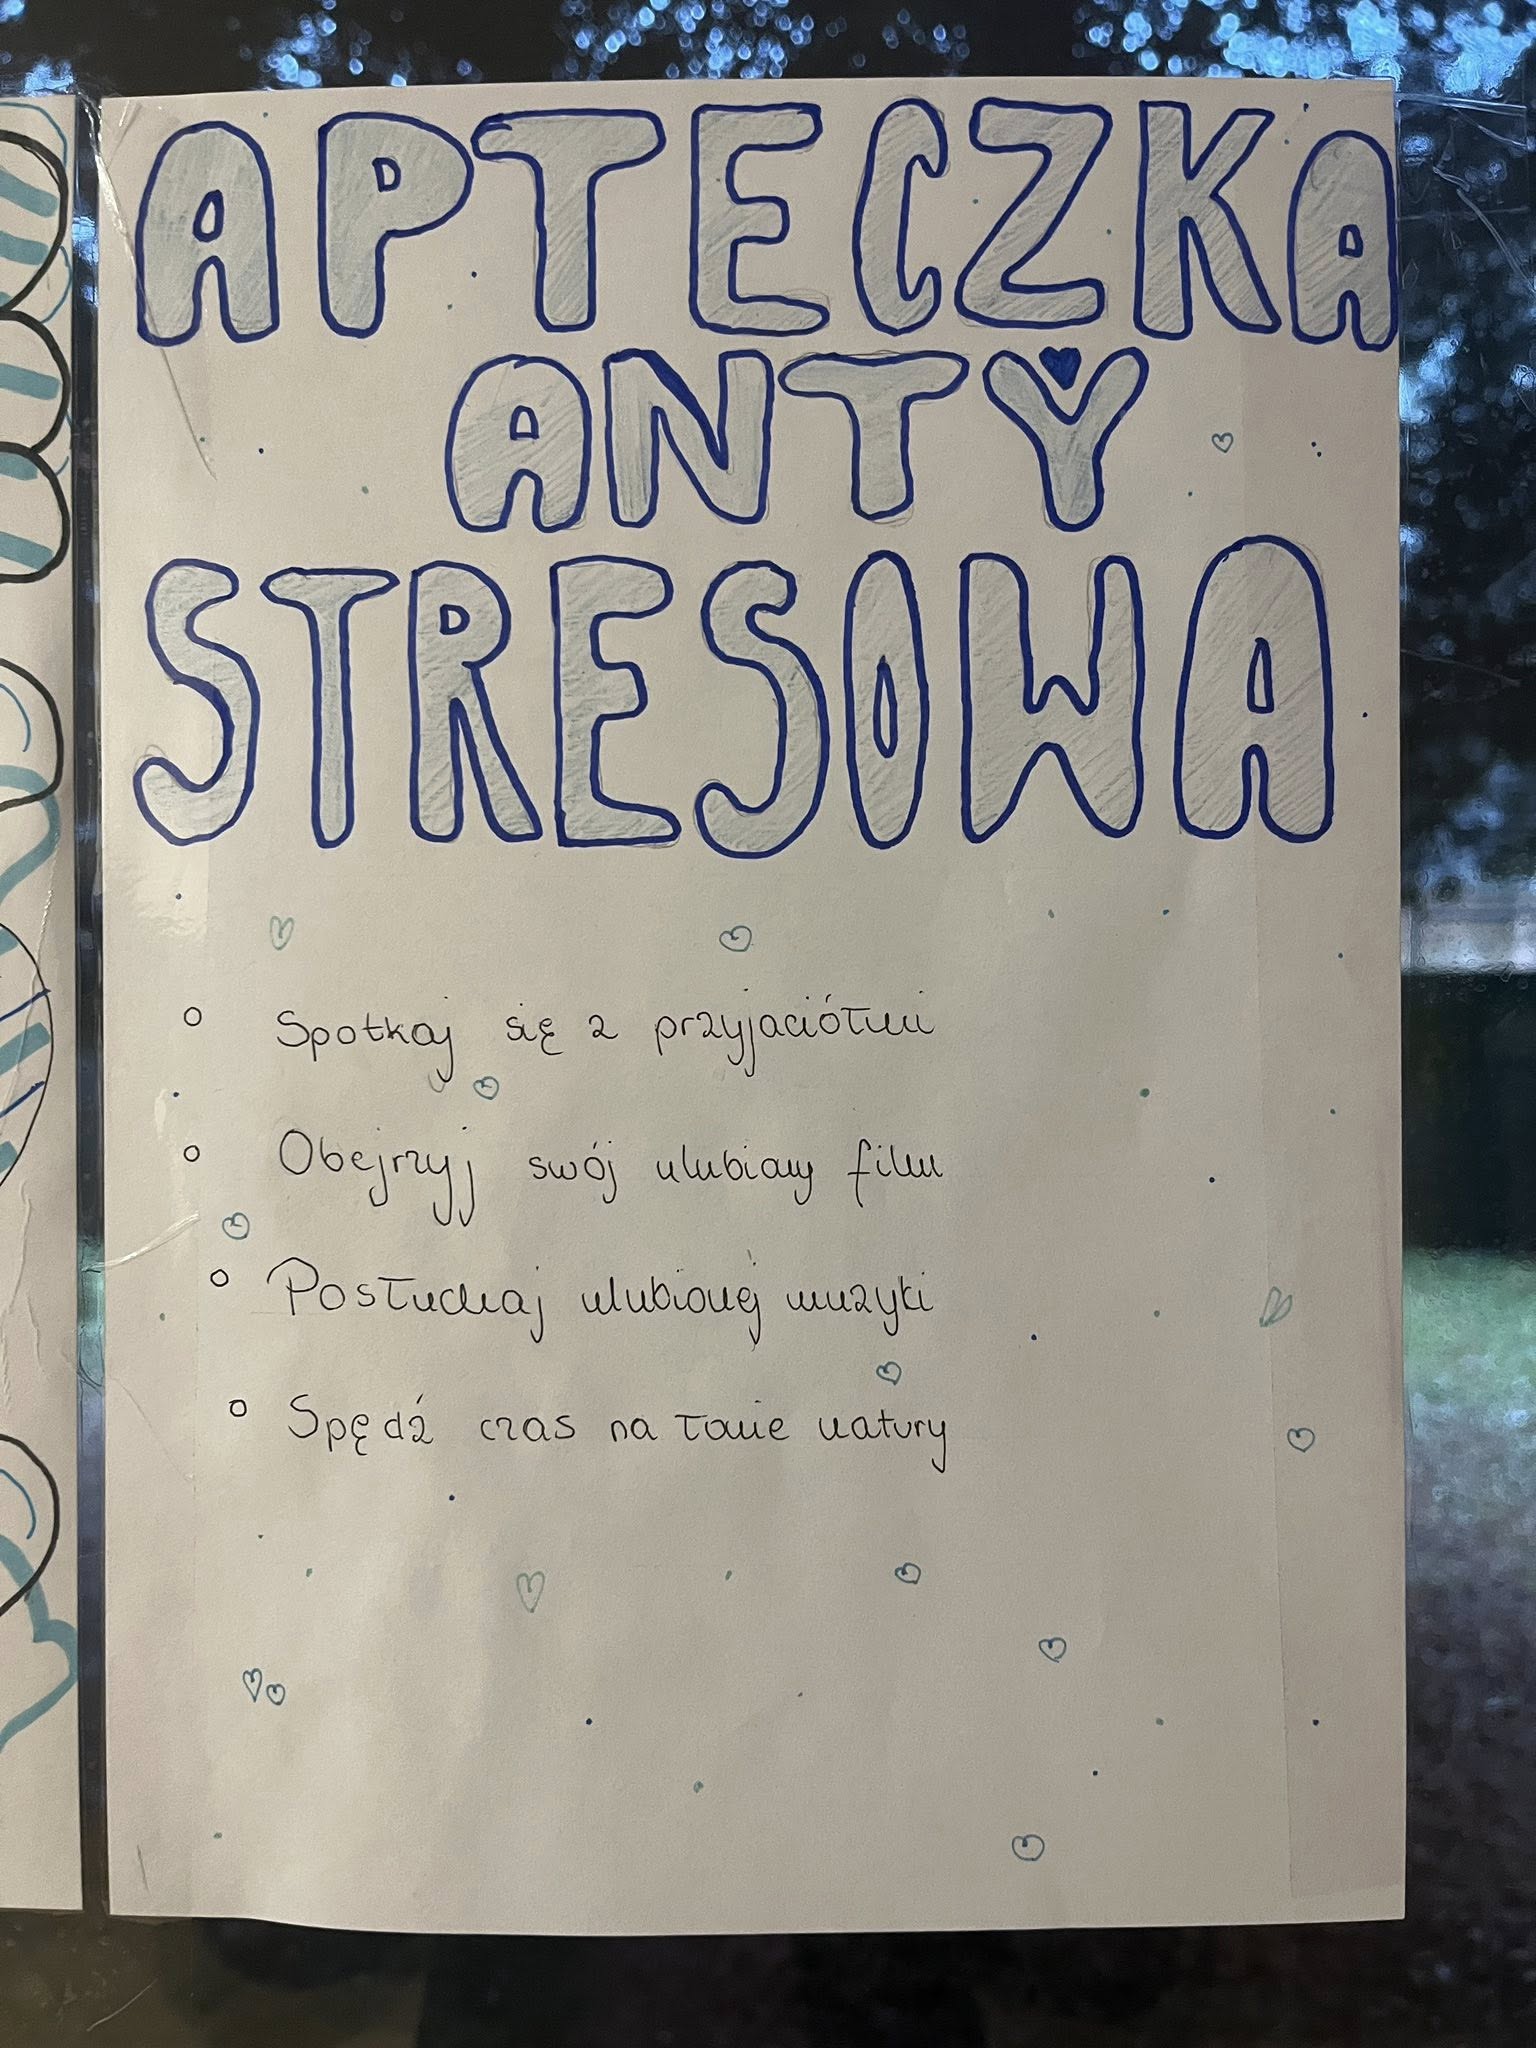 APTECZKA
ANTY
STRESOWA
Spotkaj się z przyjaciółmi
Obejrzyj swój ulubiany film
Posłuchaj ulubionej muzyki
Spędź czas na łonie natury